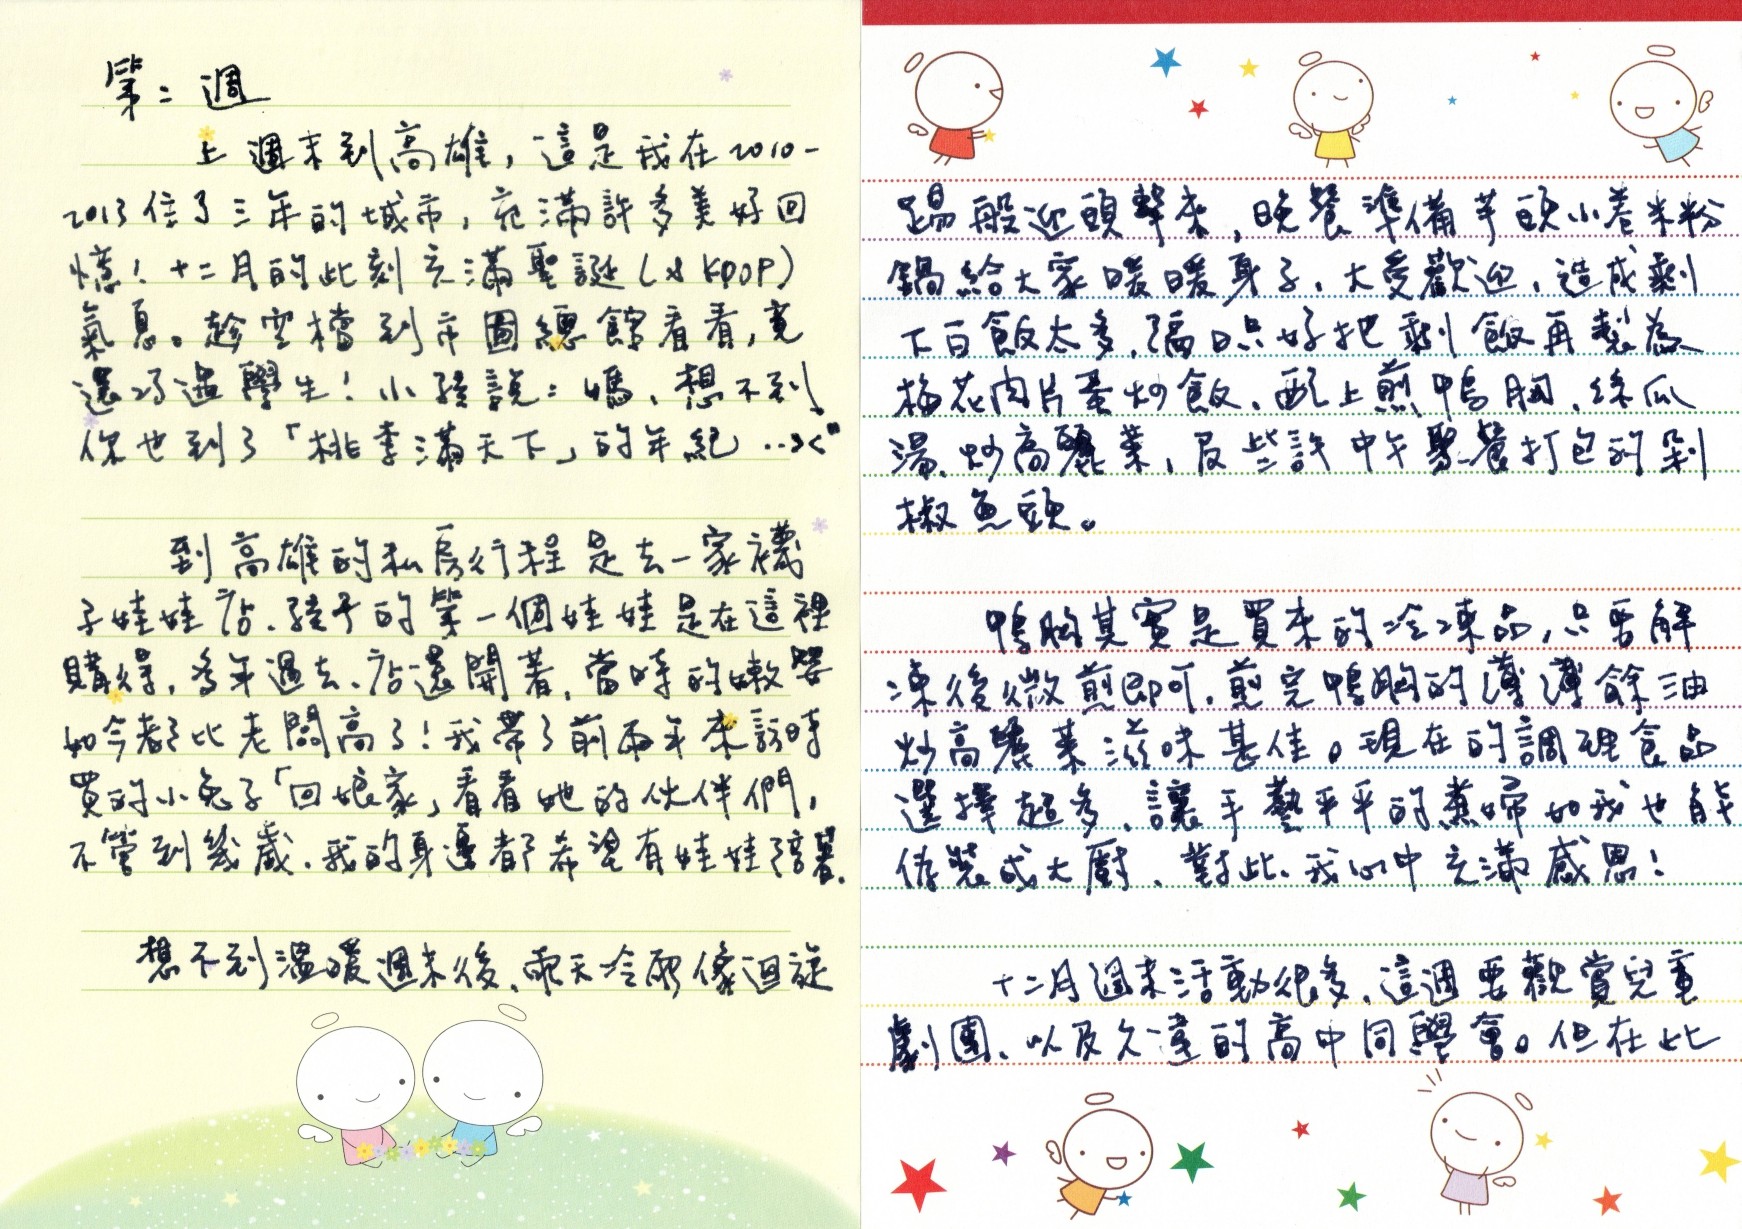 第二週
上週末到高雄，這是我在2010-
2013住了三年的城市，充滿許多美好回
憶！十二月的此刻充滿聖誕(&KPOP)
氣息。趁空檔到市圖總館看看，竟
還巧遇學生！小孩說：媽，想不到
你也到了「桃李滿天下」的年紀..><"
到高雄的私房行程是去一家襪
子娃娃店、孩子的第一個娃娃是在這裡
購得，多年過去、店還開著，當時的嫩嬰
如今都比老闆高了！我帶了前兩年來訪時
買的小兔子「回娘家」看看她的伙伴們，
不管到幾歲、我的身邊都希望有娃娃陪著.
想不到溫暖週末後、兩天冷颼像迴旋
踢般迎頭擊來，晚餐準備芋頭小卷米粉
鍋給大家暖暖身子、大受歡迎、造成剩
下白飯太多、隔日只好把剩飯再製為
梅花肉片蛋炒飯、配上煎鴨胸、絲瓜
湯、炒高麗菜，及些許中午聚餐打包的剁
椒魚頭。
鴨胸其實是買來的冷凍品，只要解
凍後微煎即可、煎完鴨胸的薄薄餘油
炒高麗菜滋味甚佳。現在的調理食品
選擇超多、讓手藝平平的煮婦如我也能
偽裝成大廚、對此、我心中充滿感恩！
十二月週末活動很多、這週要觀賞兒童
劇團、以及久違的高中同學會。但在此